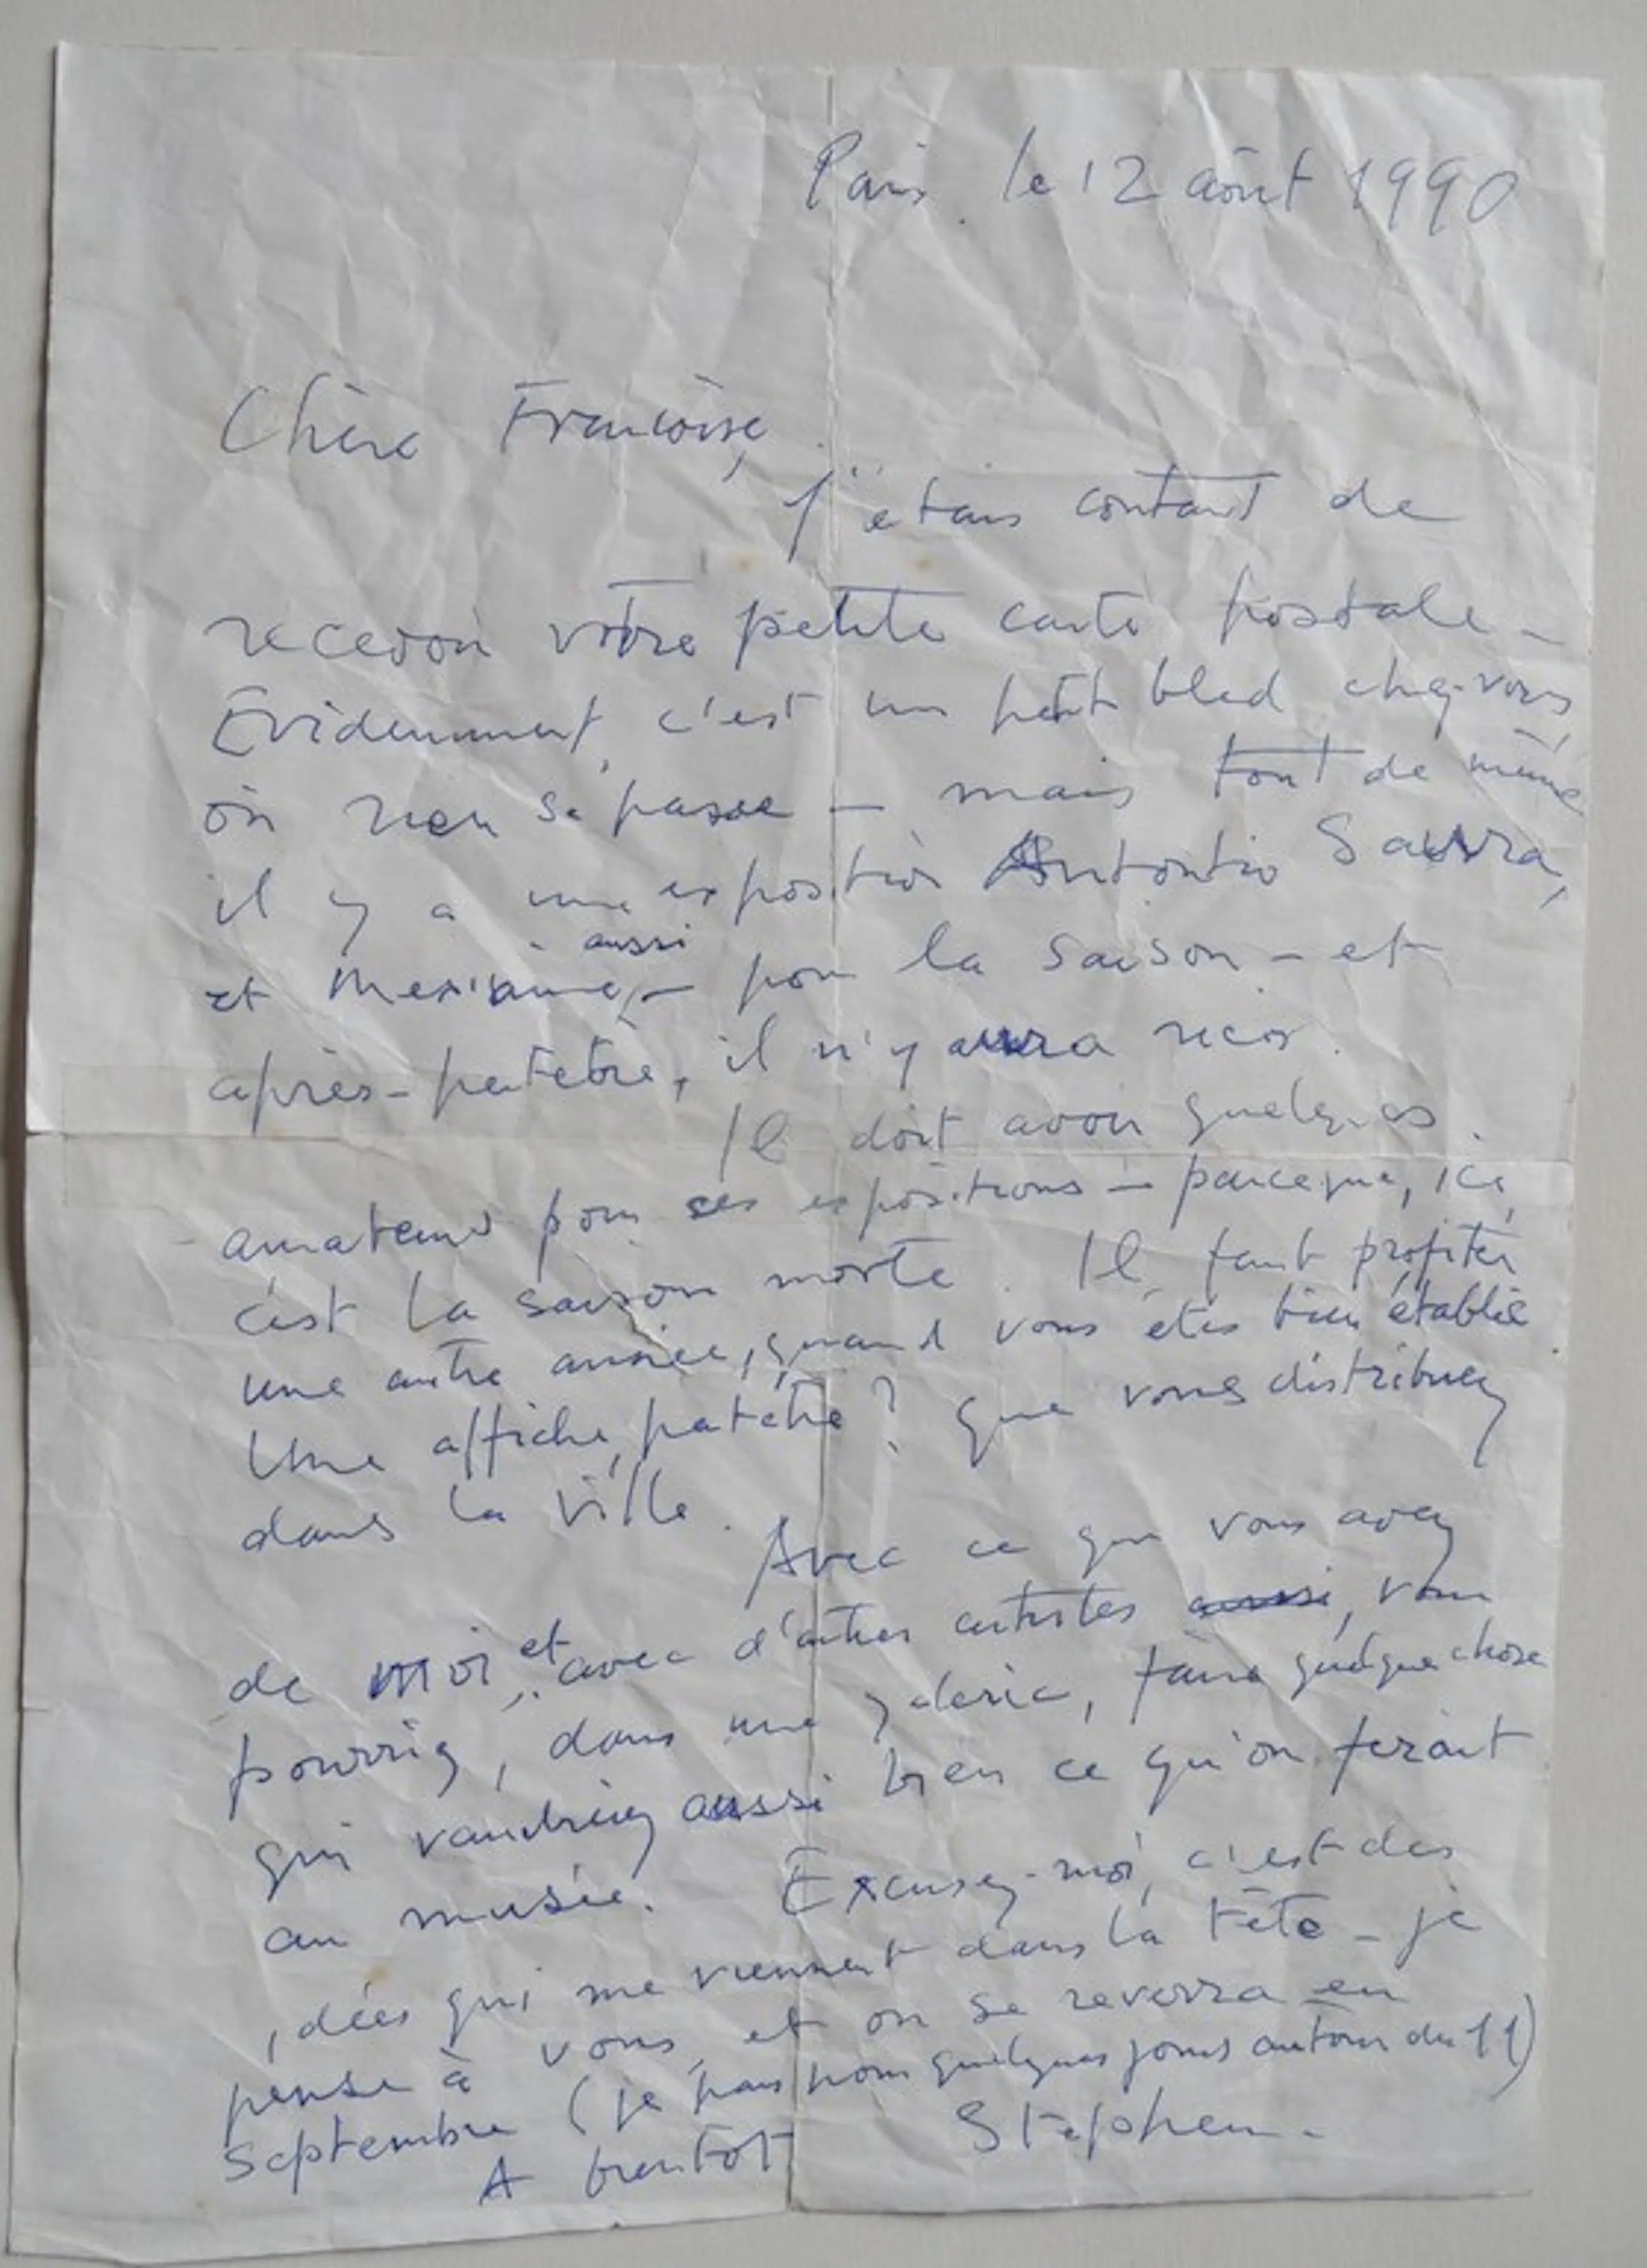 Paris. le 12 aôut 1990
Chère Françoise,
J'étais contant de
recevoir votre petite carte postale -
Evidemment, c'est un petit bled chez-vous,
où rien se passe - mais tout de même
il y a une exposition Antontio Saura,
aussi
et - pour la saison - et
après - peutêtre, il n'y aura rien.
Il doit avoir quelques
amateurs pour ses expositions - parceque, ici,
c'est la saison morte. Il faut profiter
une autre année, quand vous êtes bien établie
Une affiche, patêtre ? que vous distribuez
dans la ville.
Avec ce que vous avez
de moi, et avec d'autres artistes aussi, vous
pourriez, dans une galerie, faire quelque chose
qui vaudriez aussi bien ce qu'on ferait
au musée. Excusez-moi, c'est des
idées qui me viennent dans la tête - je
pense à vous, et on se reverra en
Septembre (je pars pour quelques jours autour du 11)
A bientôt Stephen -